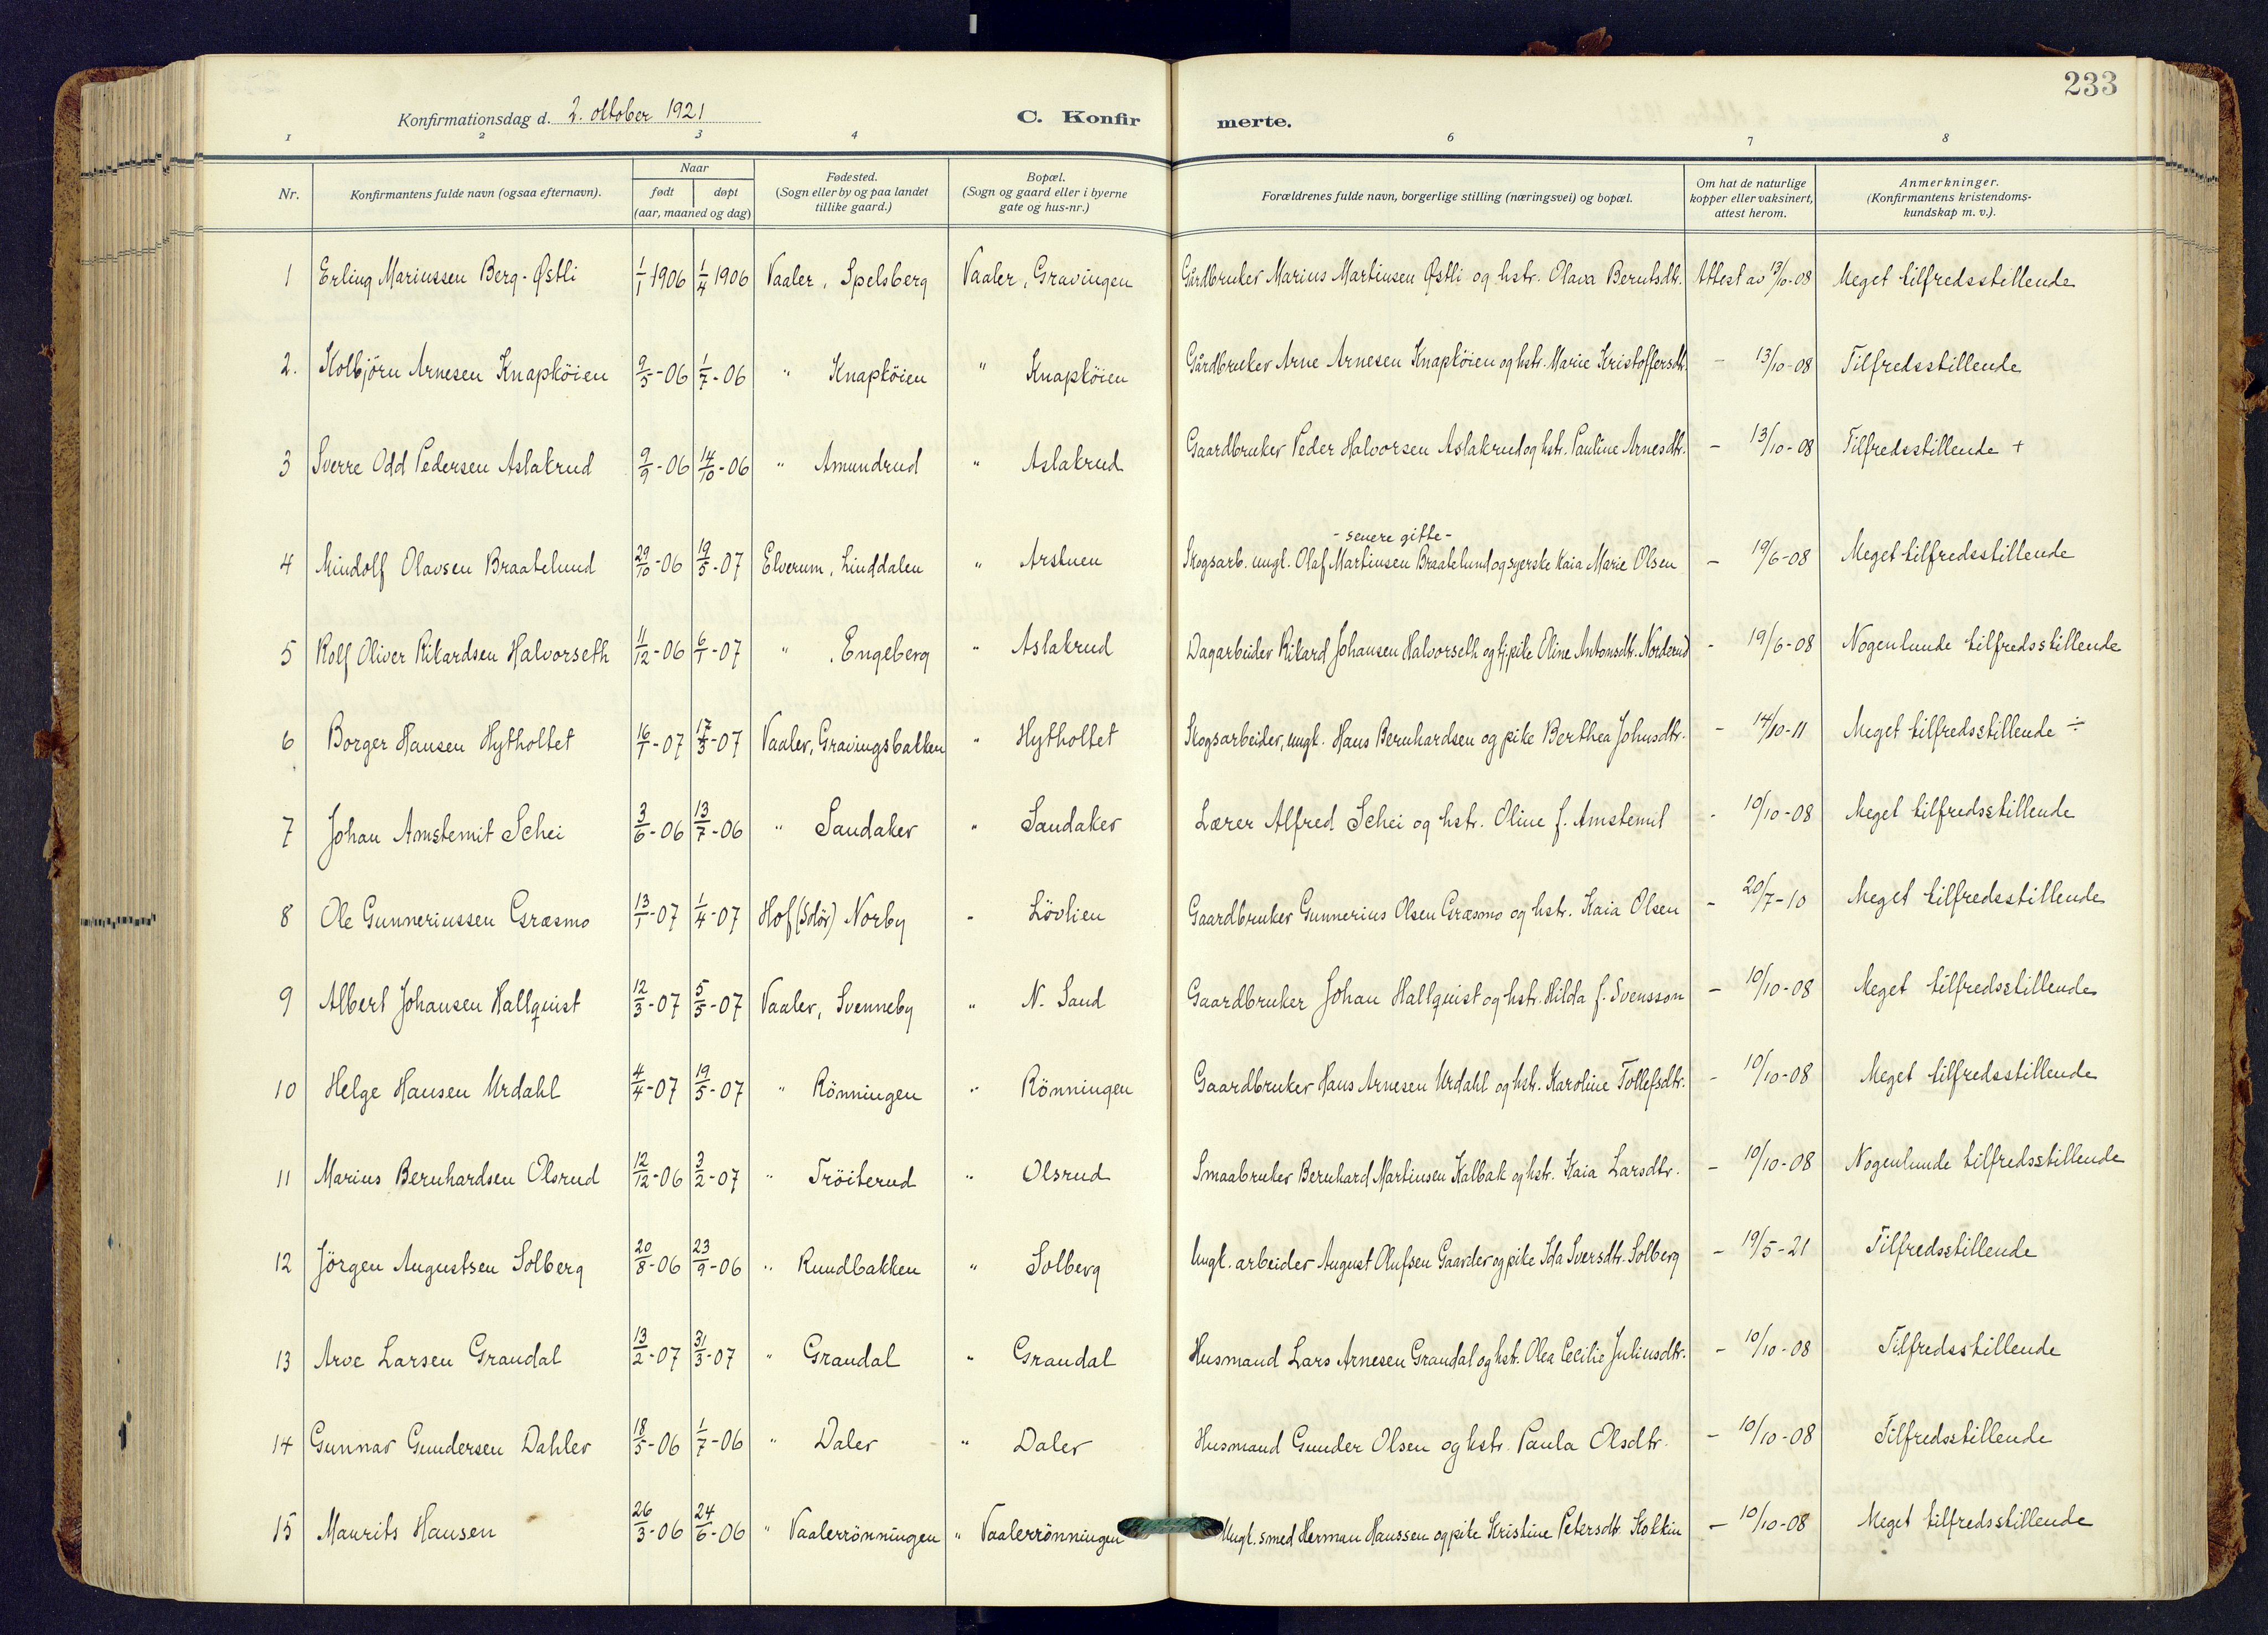 233
Konfirmationsdag d. 2. oktober 1921 C. Konfirmerte.
1 2 3 4 6 7 8
Nr. Konfirmantens fulde navn (ogsaa efternavn). Naar født døpt (aar, maaned og dag) Fødested. (Sogn eller by og paa landet tillike gaard.) Bopæl. (Sogn og gaard eller i byerne gate og hus-nr.) Forældrenes fulde navn, borgerlige stilling (næringsvei) og bopæl. Om hat de naturlige kopper eller vaksinert, attest herom. Anmerkninger. (Konfirmantens kristendomskundskap m. v.).
1 Erling Mariussen Berg-Østli 1/1 1906 1/4 1906 Vaaler, Spelsberg Vaaler, Gravingen Gårdbruker Marius Martinsen Østli og hstr. Olava Berntsdtr. Attest av 13/10-08 Meget tilfredsstillende
2. Kolbjörn Arnesen Knapköien 9/5-06 1/7-06 " Knapköien " Knapköien Gårdbruker Arne Arnesen Knapköien og hstr. Marie Kristoffersdtr. - 13/10-08 Tilfredsstillende
3 Sverre Odd Pedersen Aslakrud 9/9-06 14/10-06 " Amundrud " Aslakrud Gaardbruker Peder Halvorsen Aslakrud og hstr. Pauline Arnesdtr. - 13/10-08 Tilfredsstillende +
- senere gifte -
4 Mindolf Olavsen Braatelund 29/10-06 19/5-07 Elverum, Linddalen " Arstuen Skogsarb. ungk. Olaf Martinsen Braatelund og syerske Kaia Marie Olsen - 19/6-08 Meget tilfredsstillende
5 Rolf Oliver Rikardsen Halvorseth 11/12-06 6/1-07 " , Engeberg " Aslakrud Dagarbeider Rikard Johansen Halvorseth og tj.pike Oline Antonsdtr. Norderud - 19/6-08 Nogenlunde tilfredsstillende
6 Borger Hansen Hytholtet 16/1-07 17/3-07 Vaaler, Gravingsbakken " Hytholtet Skogsarbeider, ungk. Hans Bernhardsen og pike Berthea Johnsdtr. - 14/10-11 Meget tilfredsstillende ÷
7 Johan Amstemit Schei 3/6-06 13/7-06 " Sandaker " Sandaker Lærer Alfred Schei og hstr. Oline f. Amstemil - 10/10-08 Meget tilfredsstillende
8 Ole Gunneriussen Græsmo 13/1-07 1/4-07 Hof (Solör) Norby - Lövlien Gaardbruker Gunnerius Olsen Græsmo og hstr. Kaia Olsen - 20/7-10 Meget tilfredsstillende
9 Albert Johansen Hallquist 12/3-07 5/5-07 Vaaler, Svenneby " N. Sand Gaardbruker Johan Hallquist og hstr. Hilda f. Svensson - 10/10-08 Meget tilfredsstillende
10 Helge Hansen Urdahl 4/4-07 19/5-07 " Rönningen " Rönningen Gaardbruker Hans Arnesen Urdahl og hstr. Karoline Tollefsdtr. - 10/10-08 Meget tilfredsstillende
11 Marius Bernhardsen Olsrud 12/12-06 3/2-07 " Tröiterud " Olsrud Smaabruker Bernhard Martinsen Kalbak og hstr. Kaia Larsdtr. - 10/10-08 Nogenlunde tilfredsstillende
12 Jörgen Augustsen Solberg 20/8-06 23/9-06 " Rundbakken " Solberg Ungk. arbeider August Olufsen Gaarder og pike Ida Iversdtr. Solberg - 19/5-21 Tilfredsstillende
13 Arve Larsen Grandal 13/2-07 31/3-07 " Grandal " Grandal Husmand Lars Arnesen Grandal og hstr. Olea Cecilie Juliusdtr. - 10/10-08 Tilfredsstillende
14 Gunnar Gundersen Dahler 18/5-06 1/7-06 " Daler " Daler Husmand Gunder Olsen og hstr. Paula Olsdtr. - 10/10-08 Tilfredsstillende
15 Maurits Hansen 26/3-06 24/6-06 " Vaalerrönningen " Vaalerrönningen Ungk. smed Herman Hanssen og pike Kristine Petersdtr. Kokkin - 10/10-08 Meget tilfredsstillende